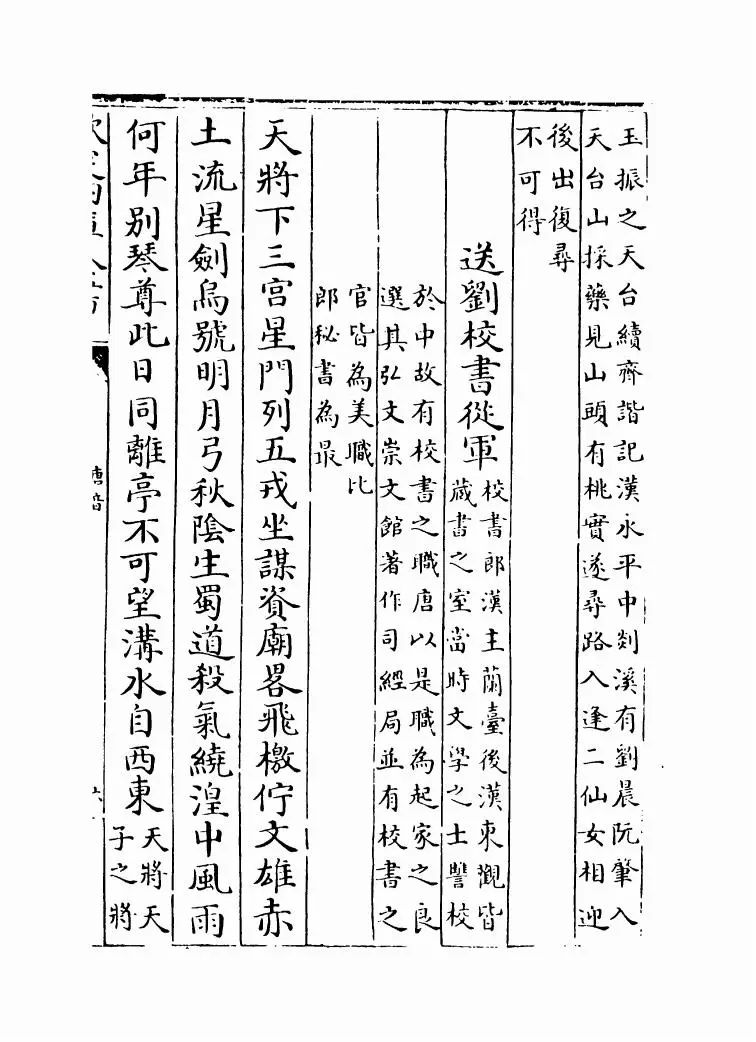 玉振之天台續齊諧記漢永平中剡溪有劉晨阮肇入
天台山採藥見山頭有桃實遂尋路入逢二仙女相迎
後出復尋
不可得
送劉校書從軍
校書郎漢主蘭臺後漢東觀皆
藏書之室當時文學之士讐校
於中故有校書之職唐以是職為起家之良
選其弘文崇文館著作司經局並有校書之
官皆為美職比
郎秘書為最
天將下三宫星門列五戎坐謀資廟畧飛檄佇文雄赤
土流星劍烏號明月弓秋陰生蜀道殺氣繞湟中風雨
何年別琴尊此日同離亭不可望溝水自西東
天將天
子之將
唐音